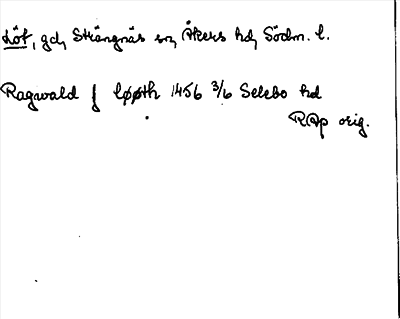 Löt, gd, Strängnäs sn, Åkers hd, Södm. l.
Ragwald J Lööth 1456 3/6 Selebo hd
RAp orig.